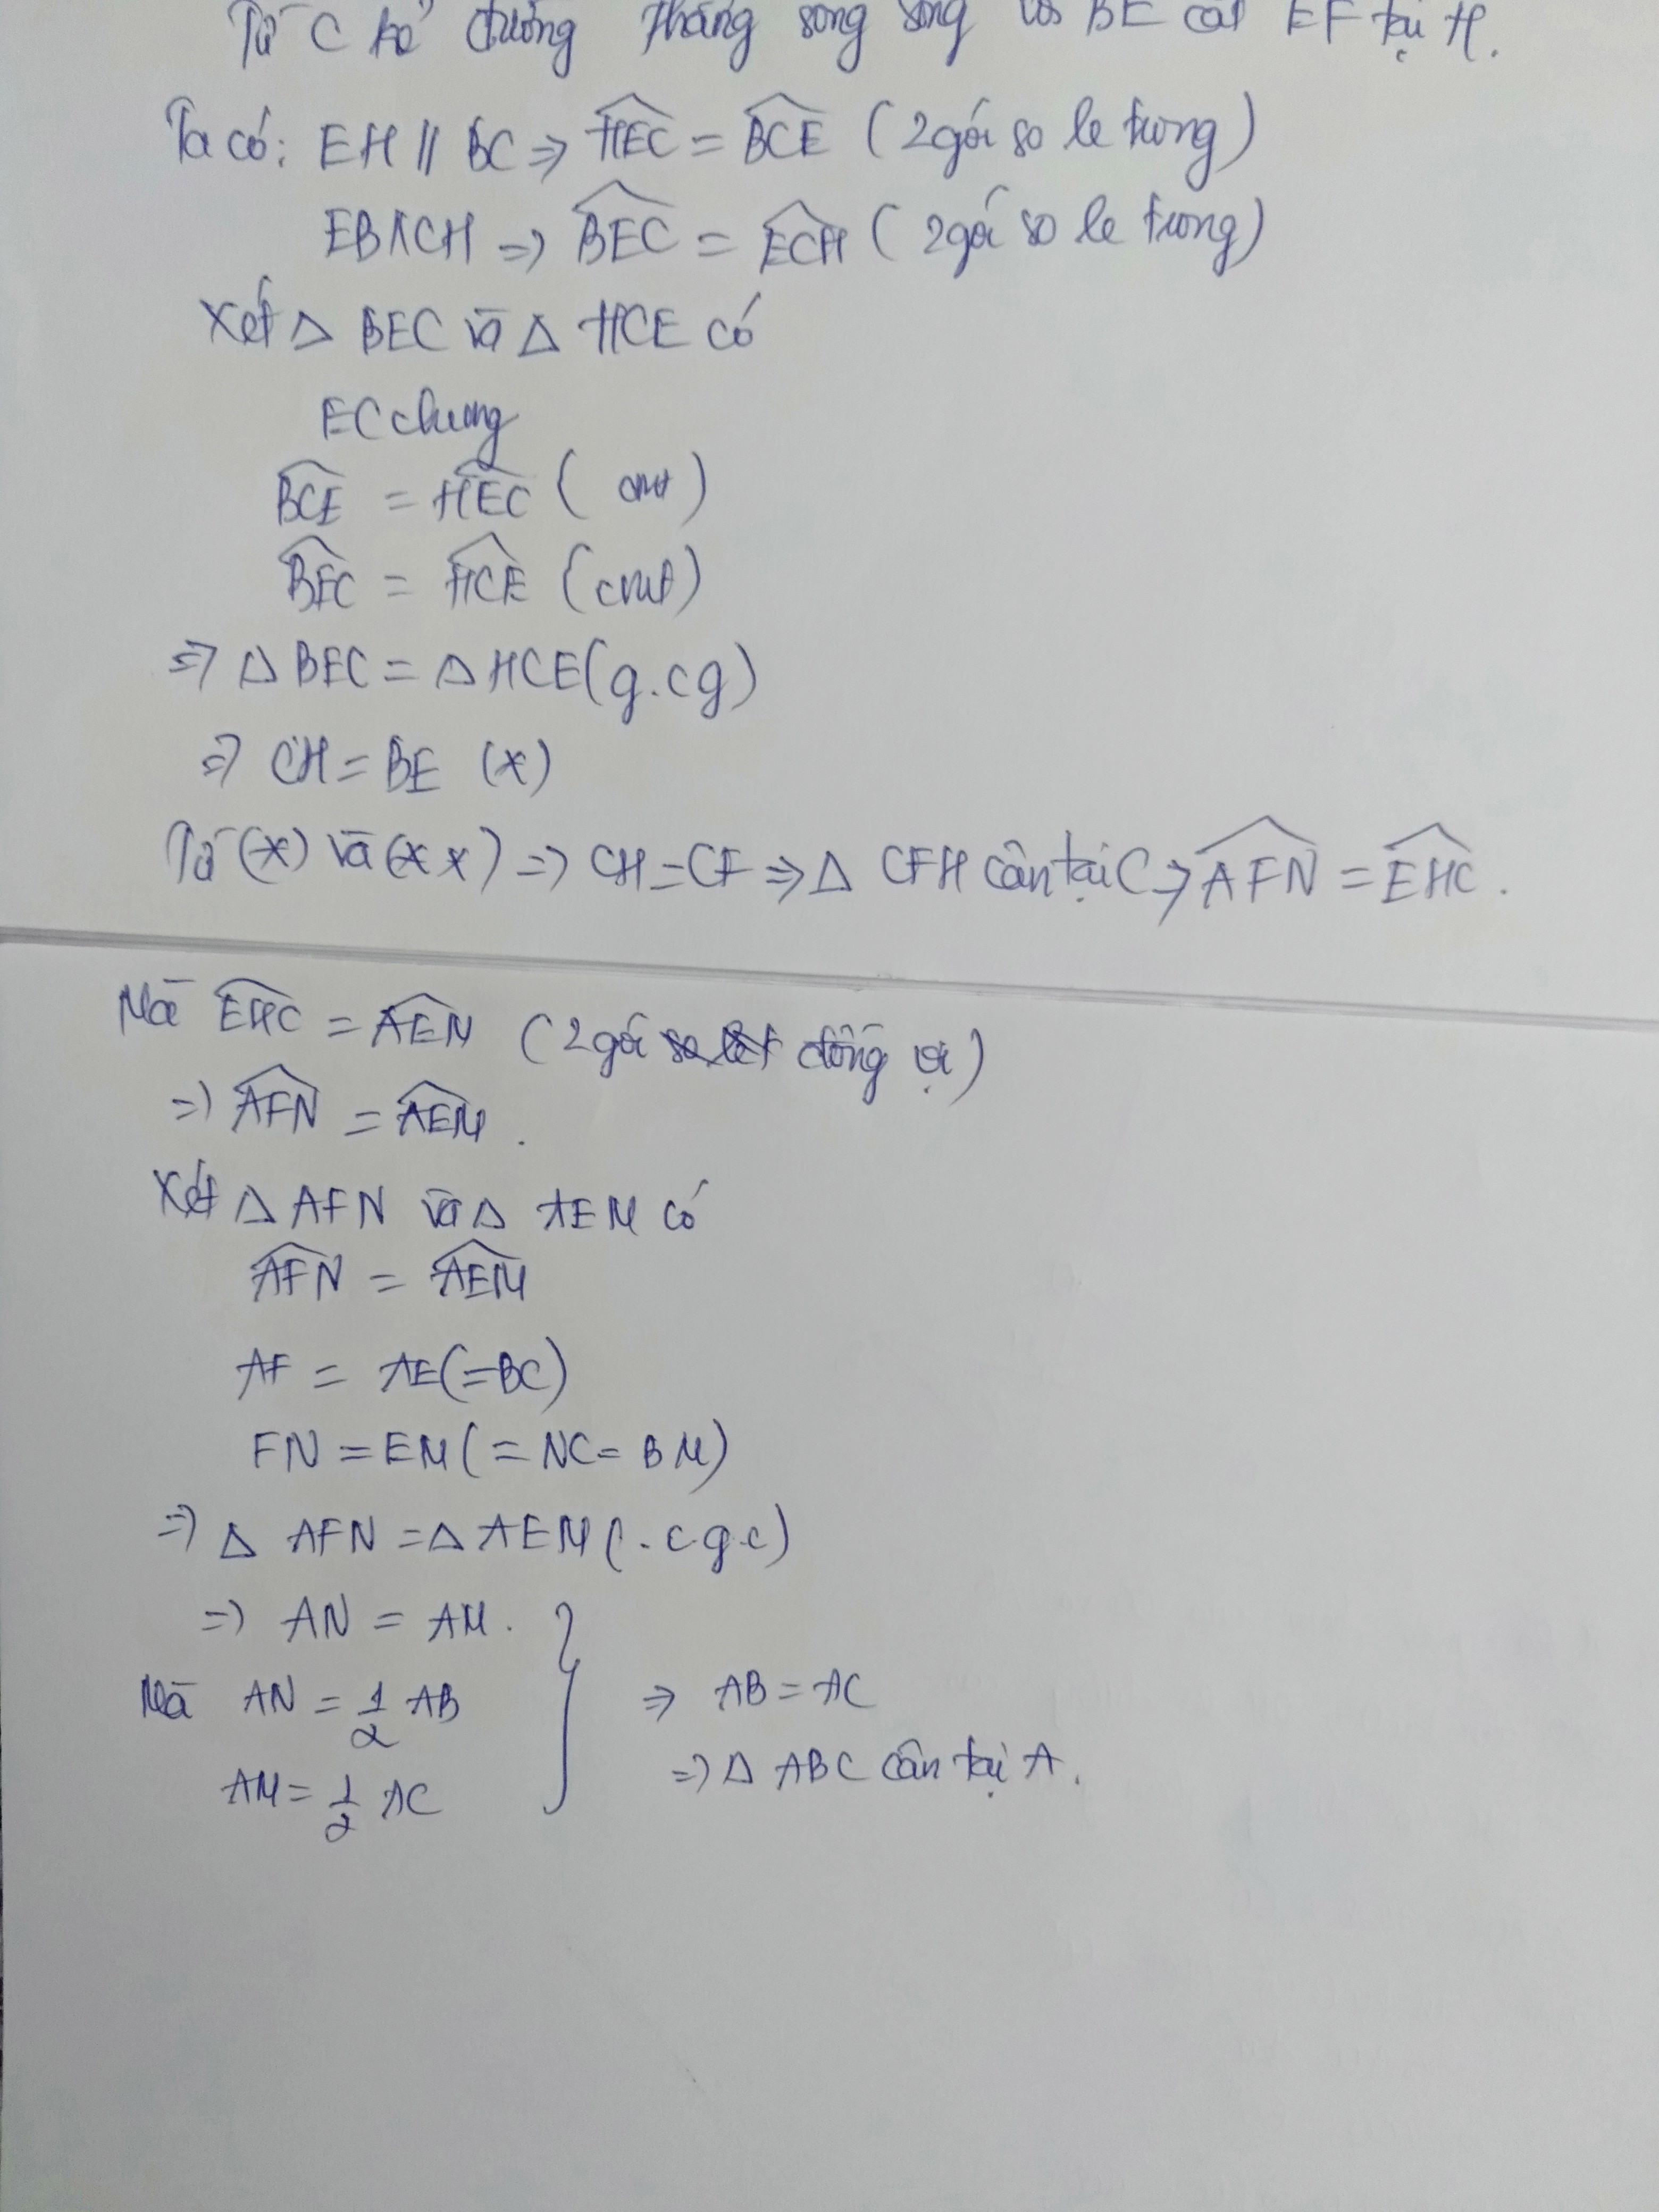 Từ C kẻ đường thẳng song song với BE cắt EF tại H.
Ta có: EH // BC => HEC = BCE ( 2 góc so le trong )
EB // CH => BEC = ECH ( 2 góc so le trong )
Xét Δ BEC và Δ HCE có
EC chung
BCE = HEC ( cmt )
BEC = HCE (cmt)
=> Δ BEC = Δ HCE (g.cg)
=> CH = BE (*)
Từ (*) và (**) => CH = CF => Δ CFH cân tại C => AFN = EHC .
Mà EHC = AEN ( 2 góc đồng vị )
=> AFN = AEM .
Xét Δ AFN và Δ AEM có
AFN = AEM
AF = AE (=BC)
FN = EM ( = NC = BM )
=> Δ AFN = Δ AEM ( . c.g.c)
=> AN = AM .
Mà AN = 1/2 AB => AB = AC
AM = 1/2 AC => Δ ABC cân tại A .